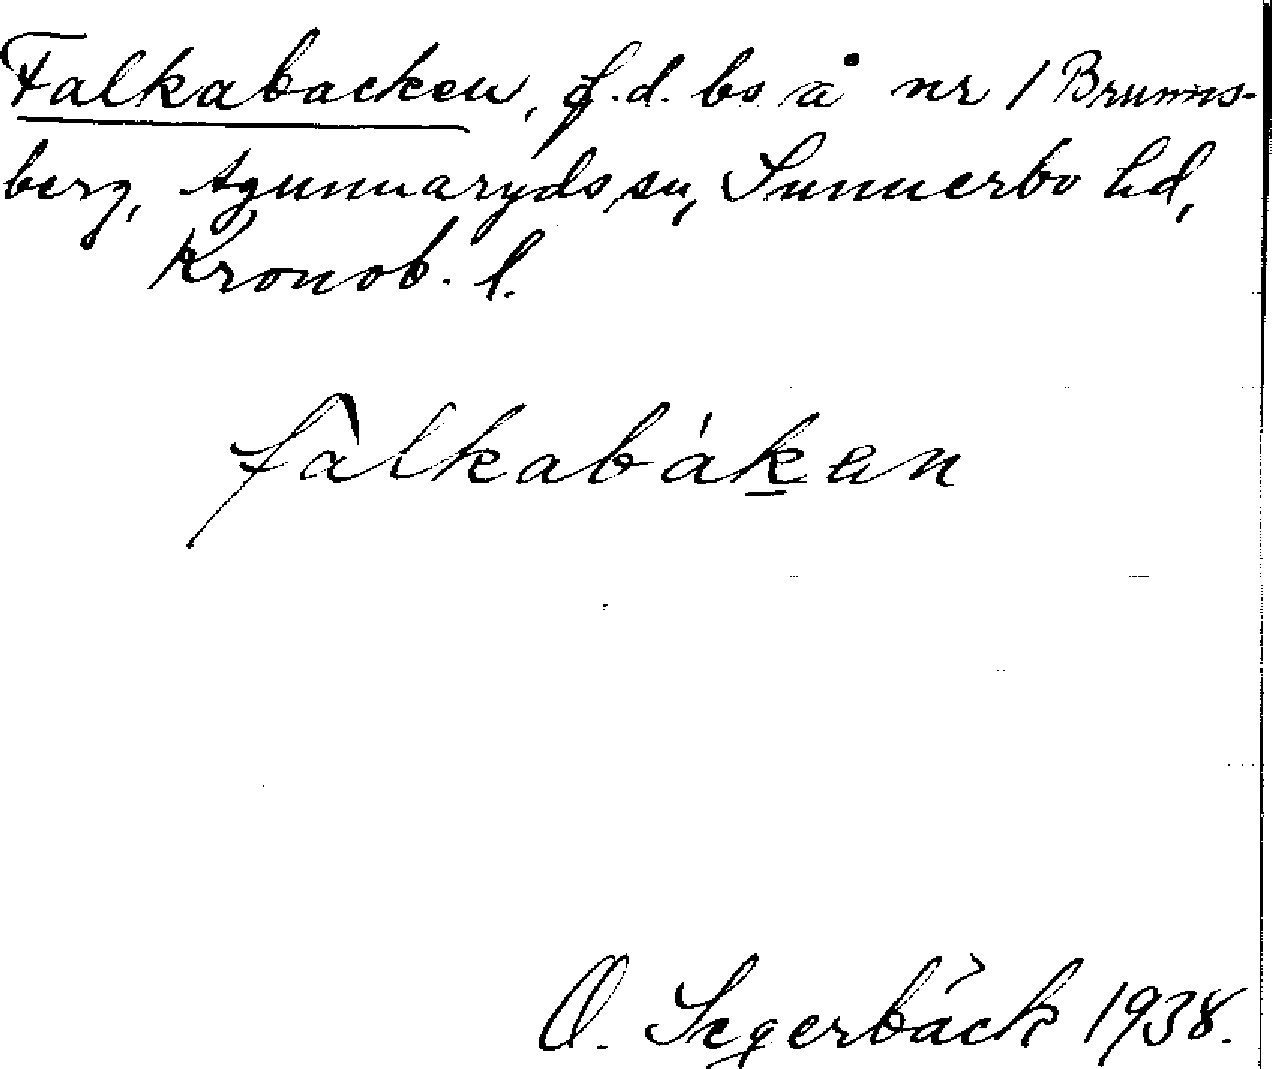 Falkabacken, f.d. bs å nr 1 Brunns-
berg, Agunnaryds sn, Sunnerbo hd,
Kronob. l.
fàlkabák̲en
O. Segerbäck 1938.